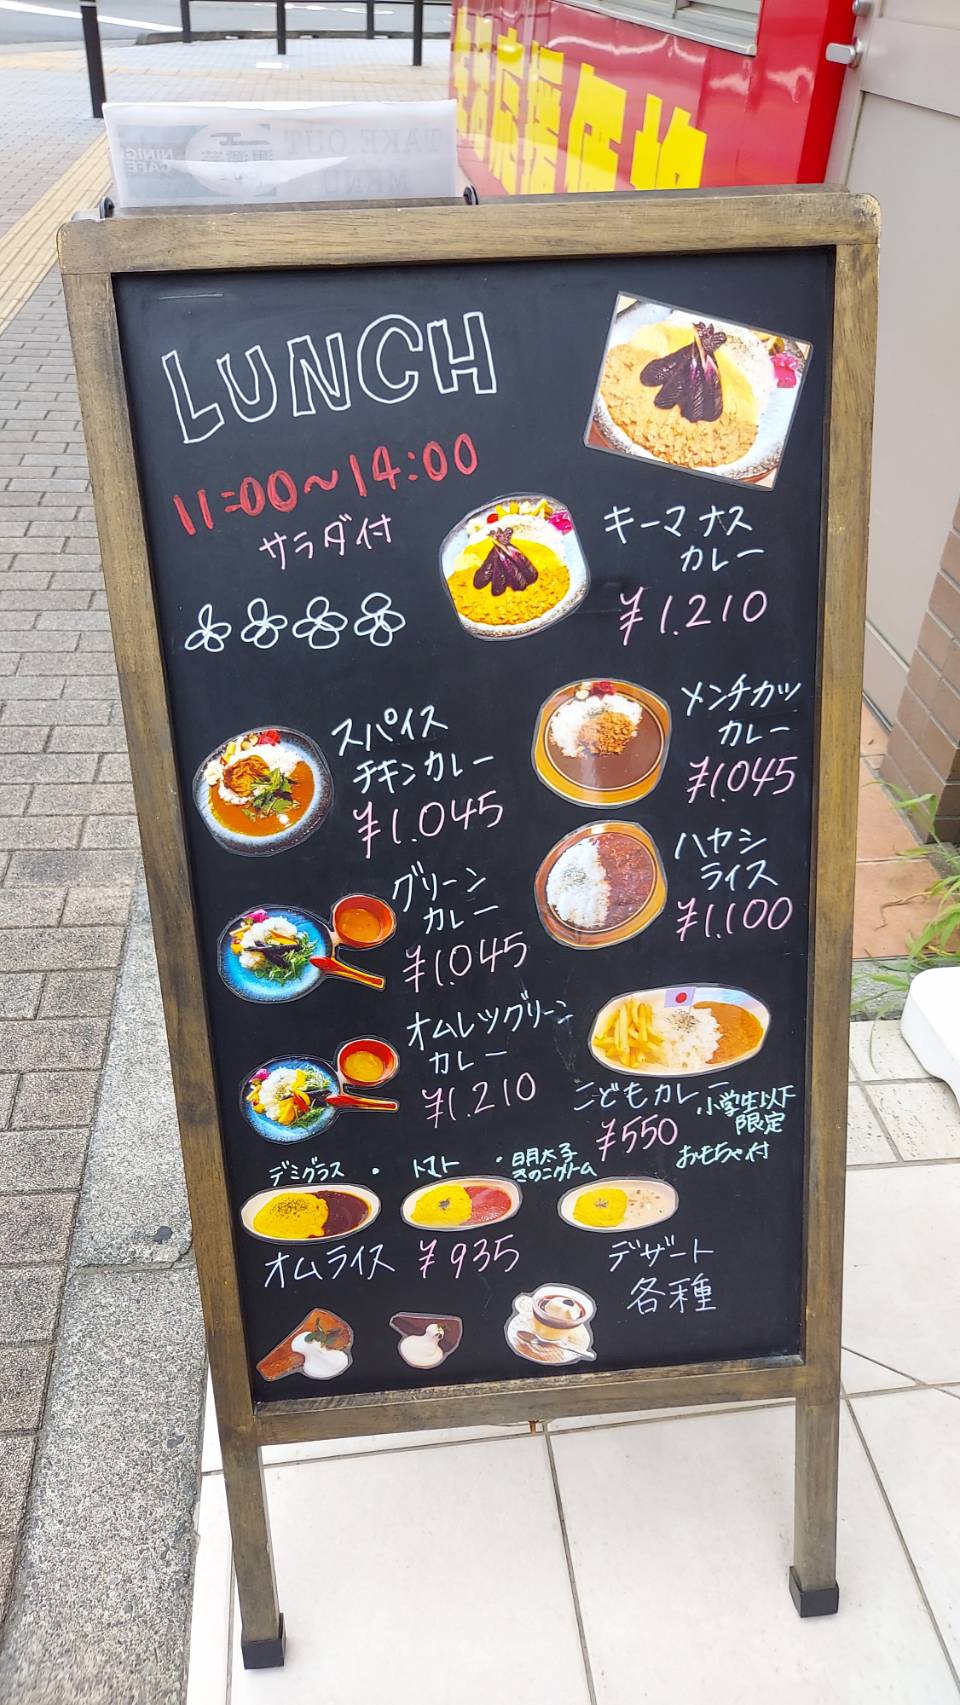 TAKE OUT
MENU
応援価格
LUNCH
11:00~14:00
サラダ付
キーマナス
カレー
¥1.210
メンチカツ
カレー
¥1.045
スパイス
チキンカレー
¥1.045
ハヤシ
ライス
¥1.100
グリーン
カレー
¥1.045
オムレツグリーン
カレー
¥1.210
こどもカレー
¥550
小学生以下
限定
おもちゃ付
デミグラス・トマト・明太子
きのこクリーム
オムライス ¥935
デザート
各種